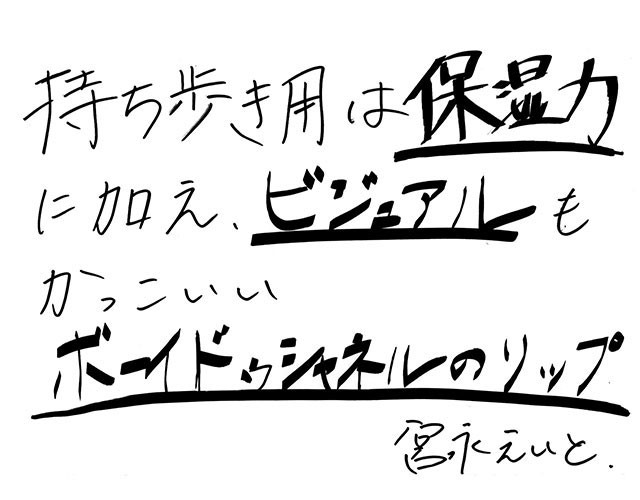 持ち歩き用は保湿力
に加え、ビジュアルも
かっこいい
ボーイドゥシャネルのリップ
宮永えいと.